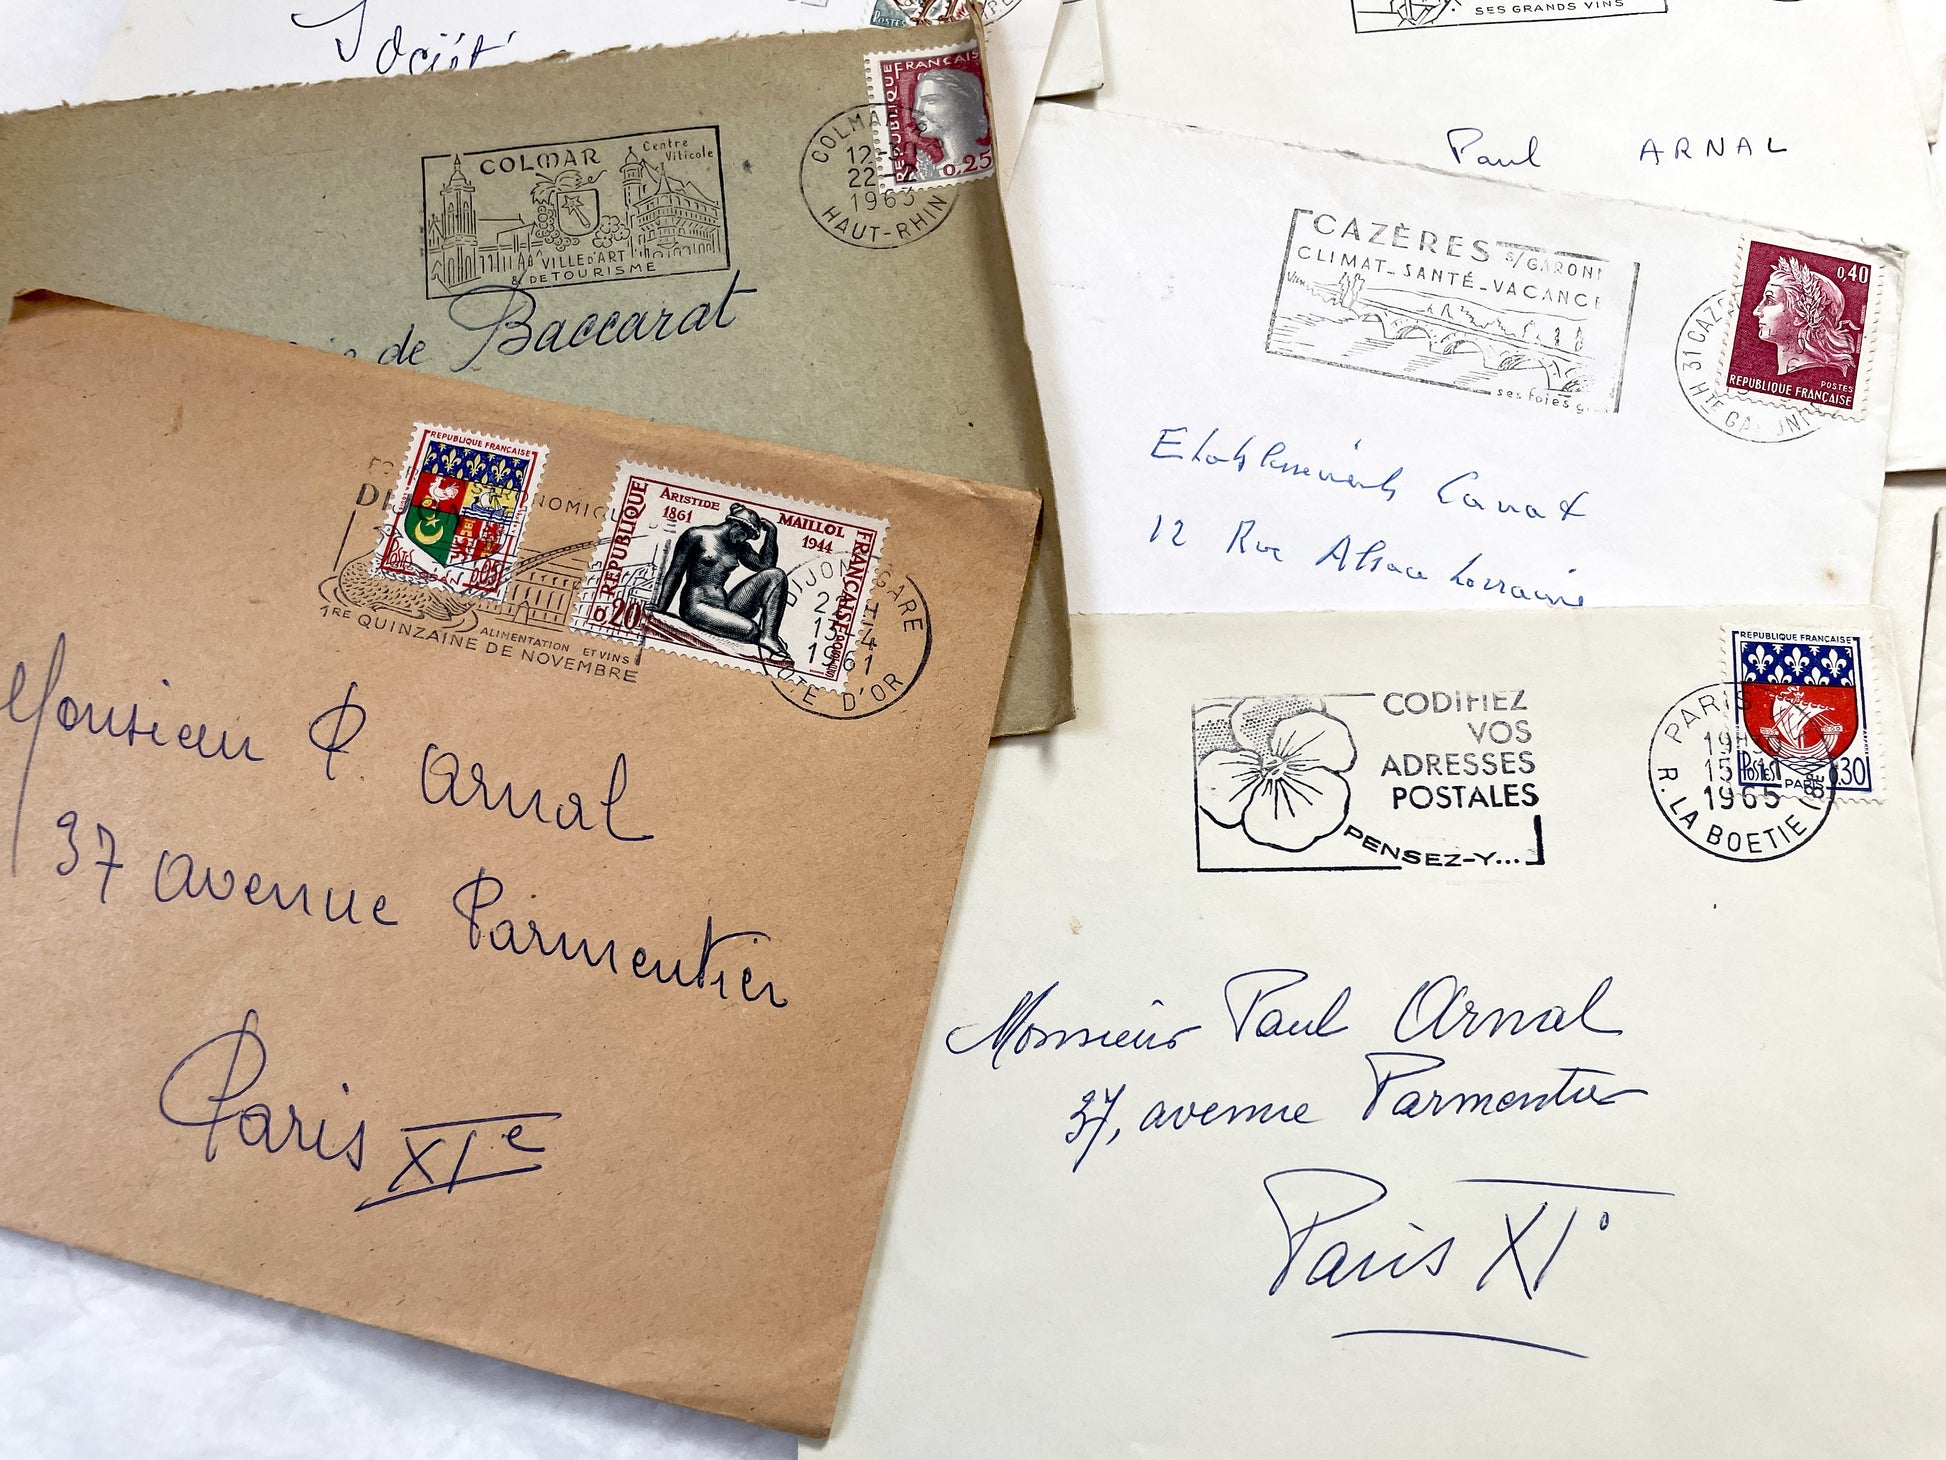 Société
SES GRANDS VINS
Paul ARNAL
COLMAR
Centre
Viticole
VILLE D'ART
& DE TOURISME
COLMAR
22
1963
HAUT-RHIN
REPUBLIQUE FRANÇAISE
0,25
de Baccarat
CAZÈRES S/GARONN
CLIMAT_SANTÉ_VACANCE
ses foies g
31 CAZ
HTE GARONNE
0,40
POSTES
REPUBLIQUE FRANÇAISE
Etablissements Canat
12 Rue Alsace Lorraine
REPUBLIQUE FRANÇAISE
POSTES
0,05
NOMIQ
ALIMENTATION ET VINS
1RE QUINZAINE DE NOVEMBRE
REPUBLIQUE FRANÇAISE
ARISTIDE MAILLOL
1861 1944
0,20
DIJON GARE
1961
COTE D'OR
Monsieur P. Arnal
37 avenue Parmentier
Paris XIe
CODIFIEZ
VOS
ADRESSES
POSTALES
PENSEZ-Y...
REPUBLIQUE FRANÇAISE
POSTES
PARIS
0,30
PARIS
15
1965
R. LA BOETIE (8e)
Monsieur Paul Arnal
37, avenue Parmentier
Paris XI°